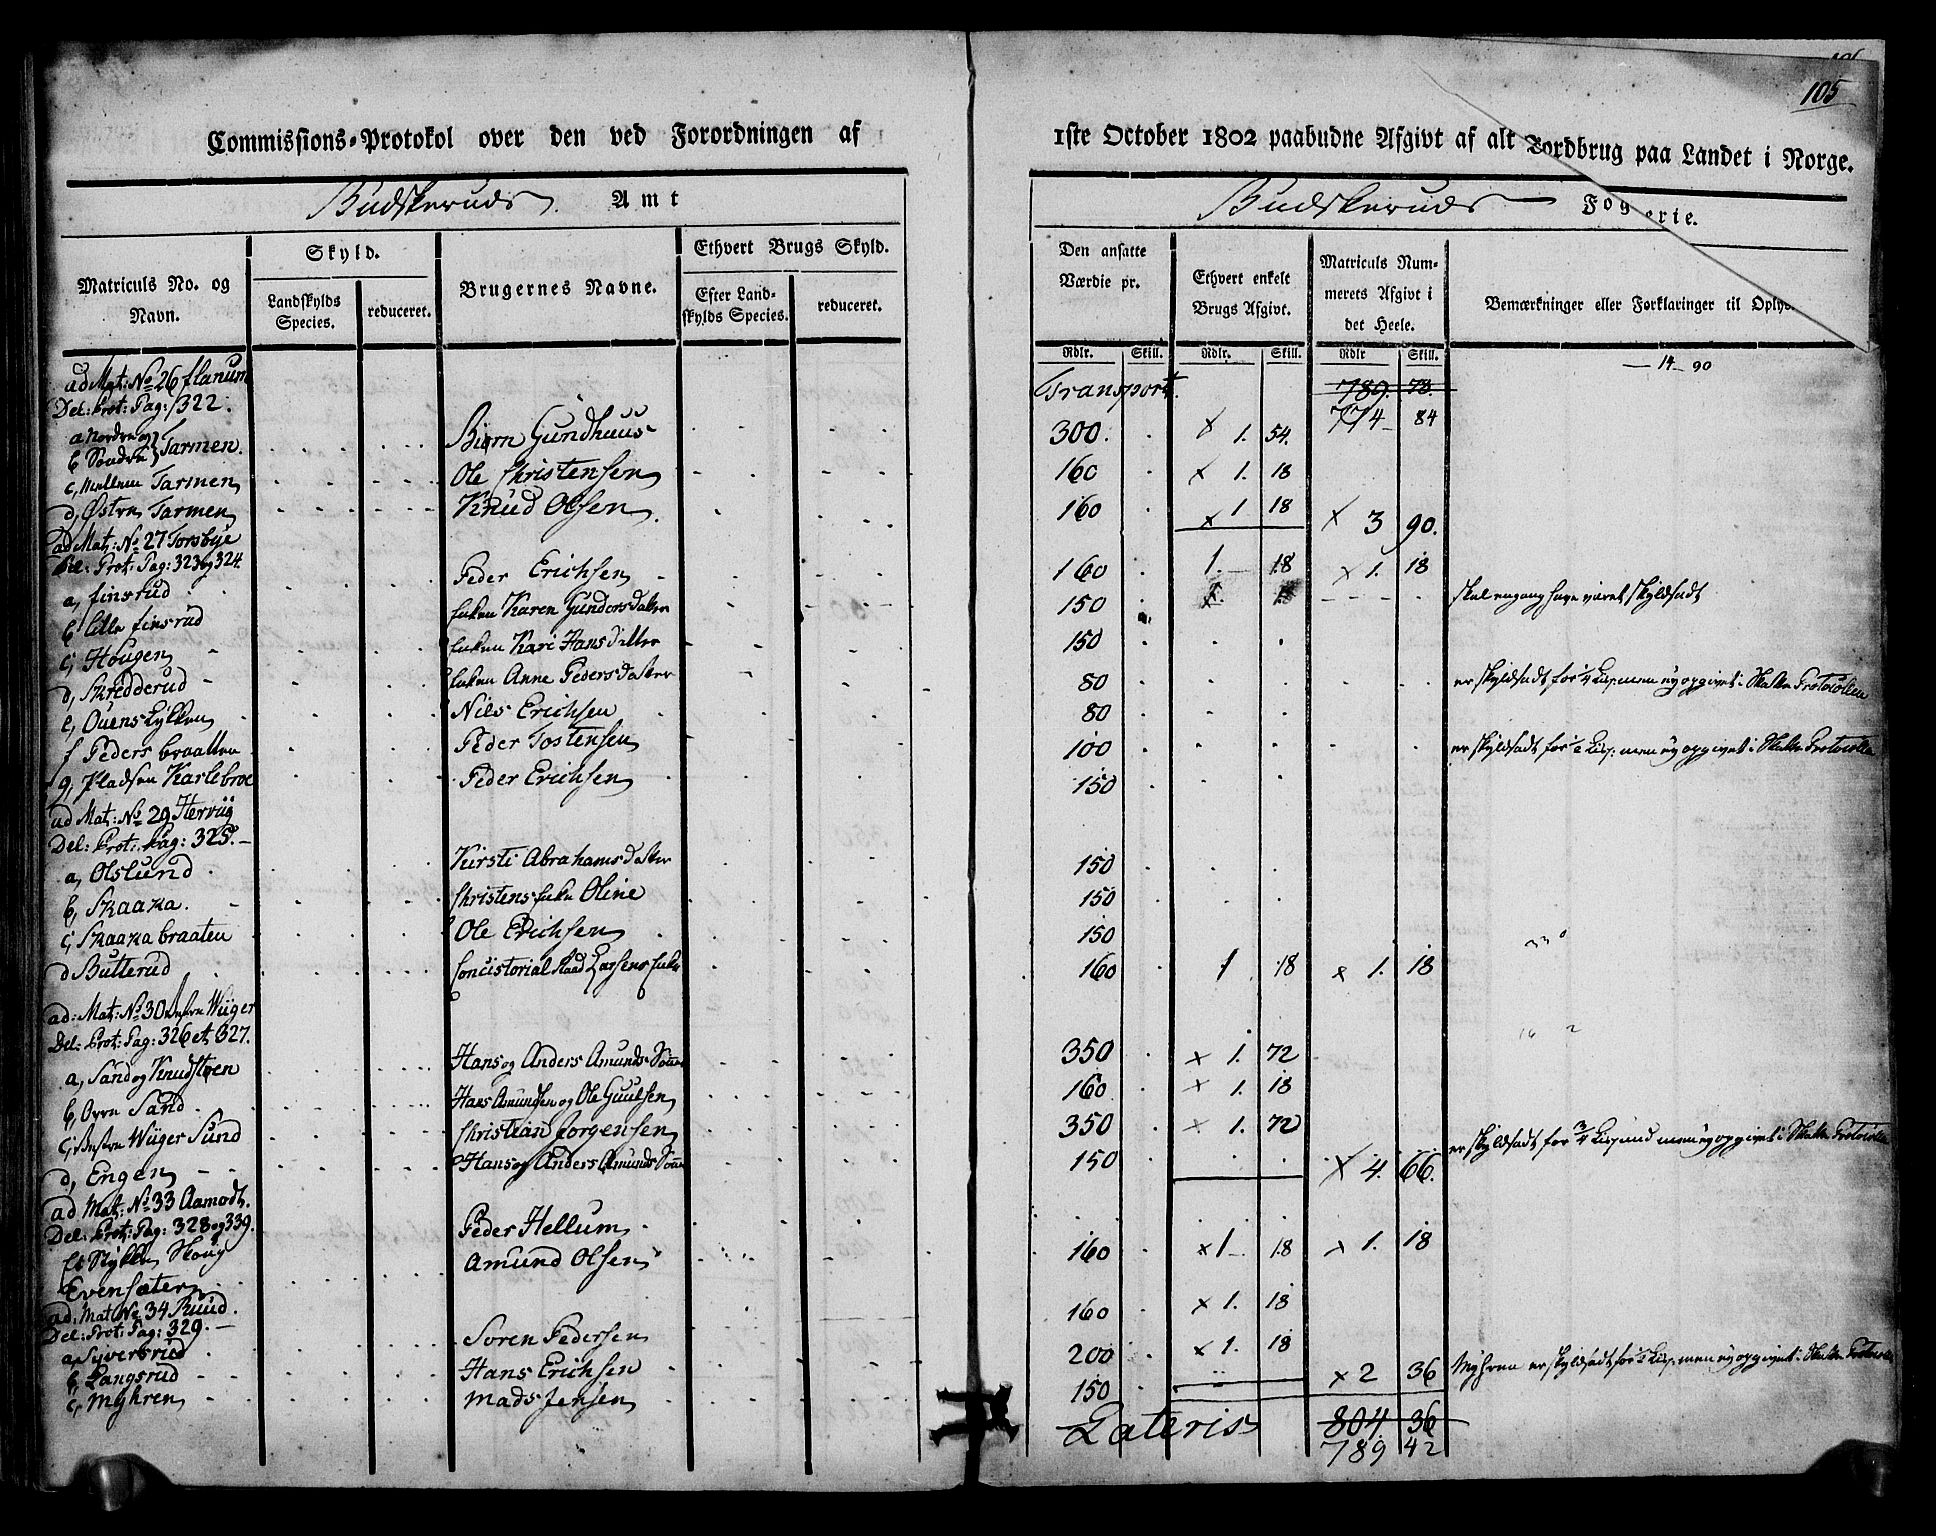 105
Commissions-Protokol over den ved Forordningen af 1ste October 1802 paabudne Afgivt af alt Jordbrug paa Landet i Norge.
Budskeruds Amt
Budskeruds Fogderie.
Matriculs No. og Navn.
Skyld.
Landskylds Species.
reduceret.
Brugernes Navne.
Ethvert Brugs Skyld.
Efter Landskylds Species.
reduceret.
Den ansatte Værdie pr.
Ethvert enkelt Brugs Afgivt.
Matriculs Nummerets Afgivt i det Heele.
Bemærkninger eller Forklaringer til Oplys
Rdlr. Skill. Rdlr. Skill. Rdlr Skill.
ad Mat: No 26 flanum Transport. 789. 78. — 14 — 90
Del: Prot: Pag: 322. 774 — 84
a Nordre og b Søndre Tarmen. Biørn Gundhuus 300. x 1. 54.
c, Mellem Tarmen Ole Christensen 160 x 1. 18
d, Østre Tarmen Knud Olsen 160 x 1 18 x 3 90.
ad Mat: No 27 Torsbye
Del: Prot: Pag: 323 og 324
a, finsrud Peder Erichsen 160 1. 18 x 1. 18
b, lille finsrud Enken Karen Gundersdatter 150 skal engang have været skyldsadt
c, Hougen Enken Kari Hansdatter 150
d, Skredderud Enken Anne Pedersdatter 80 er skyldsadt for 1/4 Lisp. men ey opgivet i Skatte Protocollen
e, Ouenslykken Niels Erichsen 80
f Peders braatten Peder Tostensen 100 er skyldsadt for 1/2 Lisp: men ey opgivet i Skatte Protocollen
g, Pladsen Karlebroe Peder Erichsen 150
ad Mat: No 29 Hervig
Del: Prot: Pag: 325. —
a, Olslund Kirsti Abrahamsdatter 150
b, Skaaka. Christens Enke Oline 150
c, Skaaka braaten Ole Erichsen 150
d Butterud Concistorial Raad Larsens Enke 160 1 18 x 1. 18
ad: Mat: No 30 Wiiger
Del: Prot: Pag: 326 et 327.
a, Sand og Knudstøen Hans og Anders Amunds Sønner 350 x 1. 72
b, Øvre Sand Hans Amundsen og Ole Guulsen 160 x 1. 18
c, Wiiger Sund Christian Jorgensen 350 x 1. 72
d, Engen Hans og Anders Amunds Sønner 150 x 4. 66. er skyldsadt for Lispund men ey opgivet i Skatte Protocollen
ad Mat: No 33 Aamodt.
Del: Prot: Pag: 328 og 339.
Et Stykke Skoug Peder Hellum
Evensæter Amund Olsen 160 x 1 18 x 1. 18
ad: Mat No 34 Ruud.
Del: Prot: Pag: 329. —
a, Syversrud Soren Pedersen 160 x 1. 18
b, Langsrud Hans Erichsen 200 x 1. 18
c, Myhren Mads Jensen 150 x 2 36 Myhren er skyldsadt for Lisp. men ey opgivet i Skatte Protocollen
Lateris 804. 36
789 42